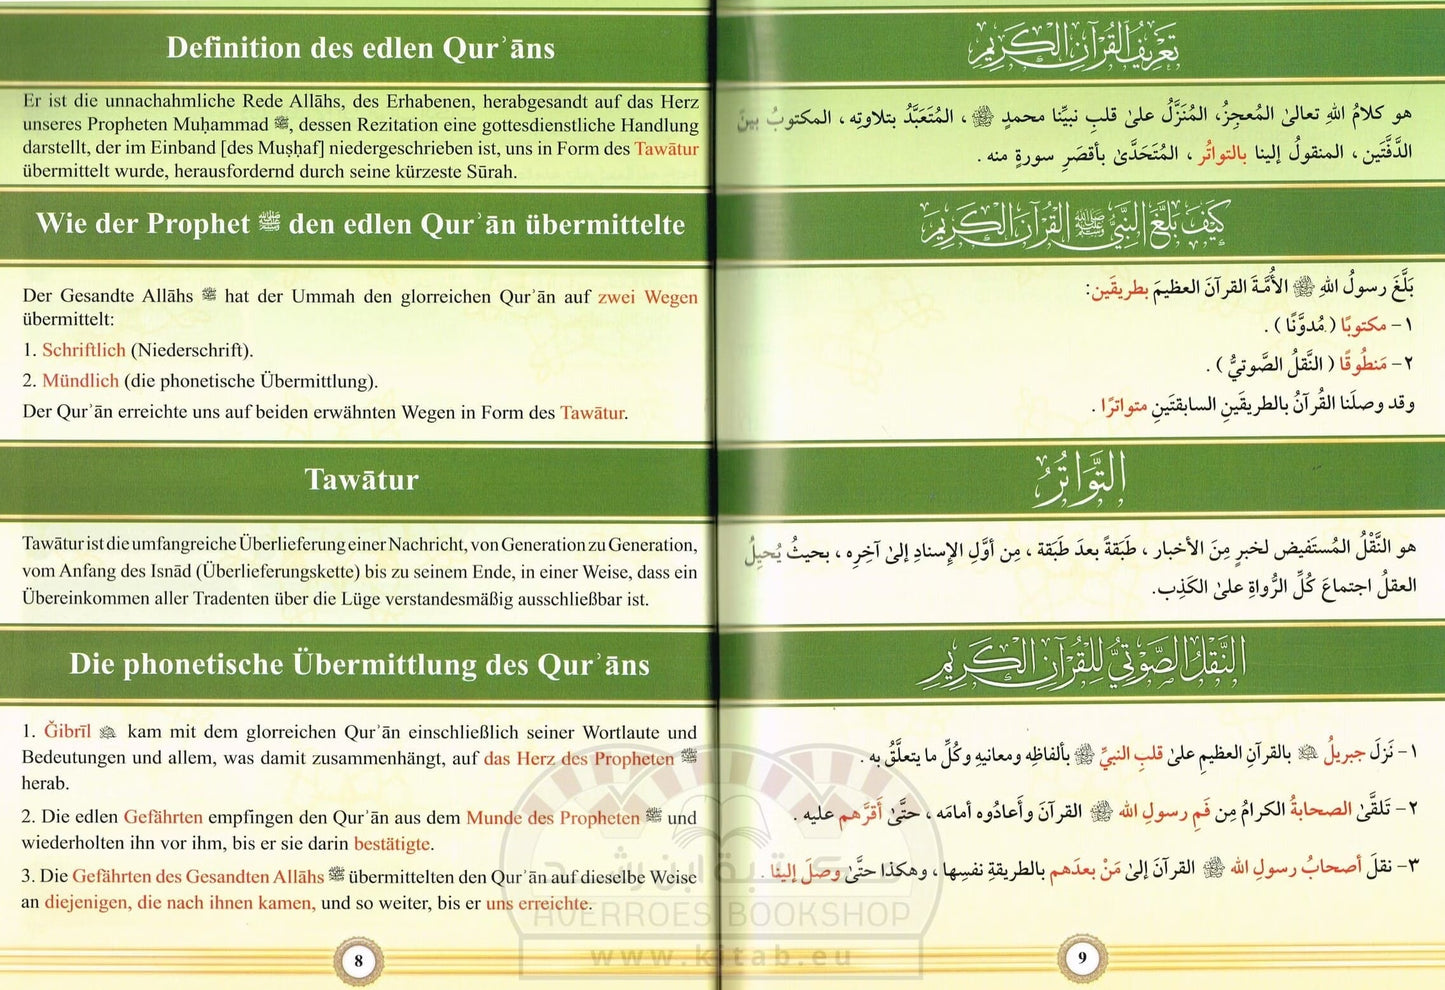 Definition des edlen Qurʾāns
Er ist die unnachahmliche Rede Allāhs, des Erhabenen, herabgesandt auf das Herz
unseres Propheten Muḥammad ﷺ, dessen Rezitation eine gottesdienstliche Handlung
darstellt, der im Einband [des Muṣḥaf] niedergeschrieben ist, uns in Form des Tawātur
übermittelt wurde, herausfordernd durch seine kürzeste Sūrah.
Wie der Prophet ﷺ den edlen Qurʾān übermittelte
Der Gesandte Allāhs ﷺ hat der Ummah den glorreichen Qurʾān auf zwei Wegen
übermittelt:
1. Schriftlich (Niederschrift).
2. Mündlich (die phonetische Übermittlung).
Der Qurʾān erreichte uns auf beiden erwähnten Wegen in Form des Tawātur.
Tawātur
Tawātur ist die umfangreiche Überlieferung einer Nachricht, von Generation zu Generation,
vom Anfang des Isnād (Überlieferungskette) bis zu seinem Ende, in einer Weise, dass ein
Übereinkommen aller Tradenten über die Lüge verstandesmäßig ausschließbar ist.
Die phonetische Übermittlung des Qurʾāns
1. Ǧibrīl kam mit dem glorreichen Qurʾān einschließlich seiner Wortlaute und
Bedeutungen und allem, was damit zusammenhängt, auf das Herz des Propheten ﷺ
herab.
2. Die edlen Gefährten empfingen den Qurʾān aus dem Munde des Propheten ﷺ und
wiederholten ihn vor ihm, bis er sie darin bestätigte.
3. Die Gefährten des Gesandten Allāhs ﷺ übermittelten den Qurʾān auf dieselbe Weise
an diejenigen, die nach ihnen kamen, und so weiter, bis er uns erreichte.
8
تعريف القرآن الكريم
هو كلامُ اللهِ تعالىٰ المُعجِزُ، المُنَزَّلُ علىٰ قلبِ نبيِّنا محمدٍ ﷺ ، المُتَعَبَّدُ بتلاوتِه ، المكتوبُ بينَ
الدَّفَّتَين ، المنقولُ إلينا بالتواتُر ، المُتَحَدَّىٰ بأقصَرِ سورةٍ منه .
كيف بلَّغ النبيُّ ﷺ القرآنَ الكريم
بَلَّغَ رسولُ اللهِ ﷺ الأُمَّـةَ القرآنَ العظيمَ بطريقَين:
١- مكتوبًا ( مُدوَّنًا ) .
٢- مَنطُوقًا ( النَّقلُ الصَّوتيُّ ) .
وقد وصلَنا القُرآنُ بالطريقَينِ السابقتَينِ متواترًا .
التَّواتُرُ
هو النَّقْلُ المُستَفيض لخبرٍ مِنَ الأخبار ، طَبَقةً بعدَ طَبَقة ، مِن أوَّلِ الإسنادِ إلىٰ آخِرِه ، بحيثُ يُحيلُ
العقلُ اجتماعَ كُلِّ الرُّواةِ علىٰ الكَذِب.
النَّقلُ الصَّوتيُّ للقرآنِ الكريم
١- نَزلَ جبريلُ بالقرآنِ العظيمِ علىٰ قلبِ النبيِّ ﷺ بألفاظِه ومعانيهِ وكُلِّ ما يتعلَّقُ به .
٢- تَلقَّىٰ الصحابةُ الكرامُ مِن فَمِ رسولِ الله ﷺ القرآنَ وأعادُوه أمامَه ، حتَّىٰ أقرَّهم عليه .
٣- نقلَ أصحابُ رسولِ الله ﷺ القرآنَ إلىٰ مَنْ بعدَهم بالطريقةِ نفسِها ، وهكذا حتَّىٰ وصلَ إلينا .
9
مكتبة ابن رشد
AVERROES BOOKSHOP
www.kitab.eu